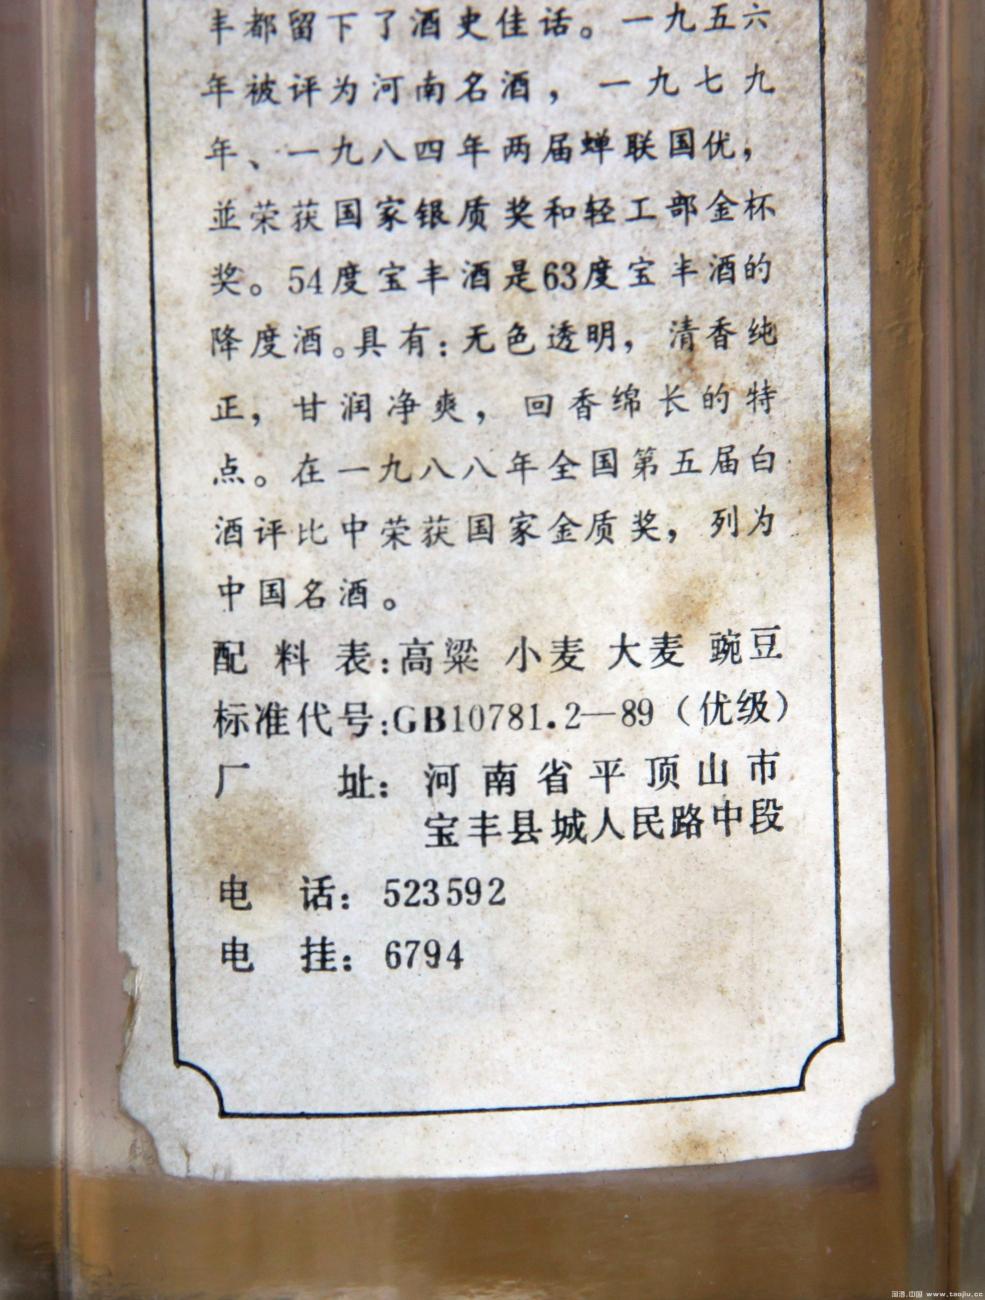 丰都留下了酒史佳话。一九五六
年被评为河南名酒，一九七九
年、一九八四年两届蝉联国优，
並荣获国家银质奖和轻工部金杯
奖。54度宝丰酒是63度宝丰酒的
降度酒。具有：无色透明，清香纯
正，甘润净爽，回香绵长的特
点。在一九八八年全国第五届白
酒评比中荣获国家金质奖，列为
中国名酒。
配料表:高粱 小麦 大麦 豌豆
标准代号:GB10781.2—89（优级）
厂址：河南省平顶山市
宝丰县城人民路中段
电话：523592
电挂：6794
www.taojiu.cc